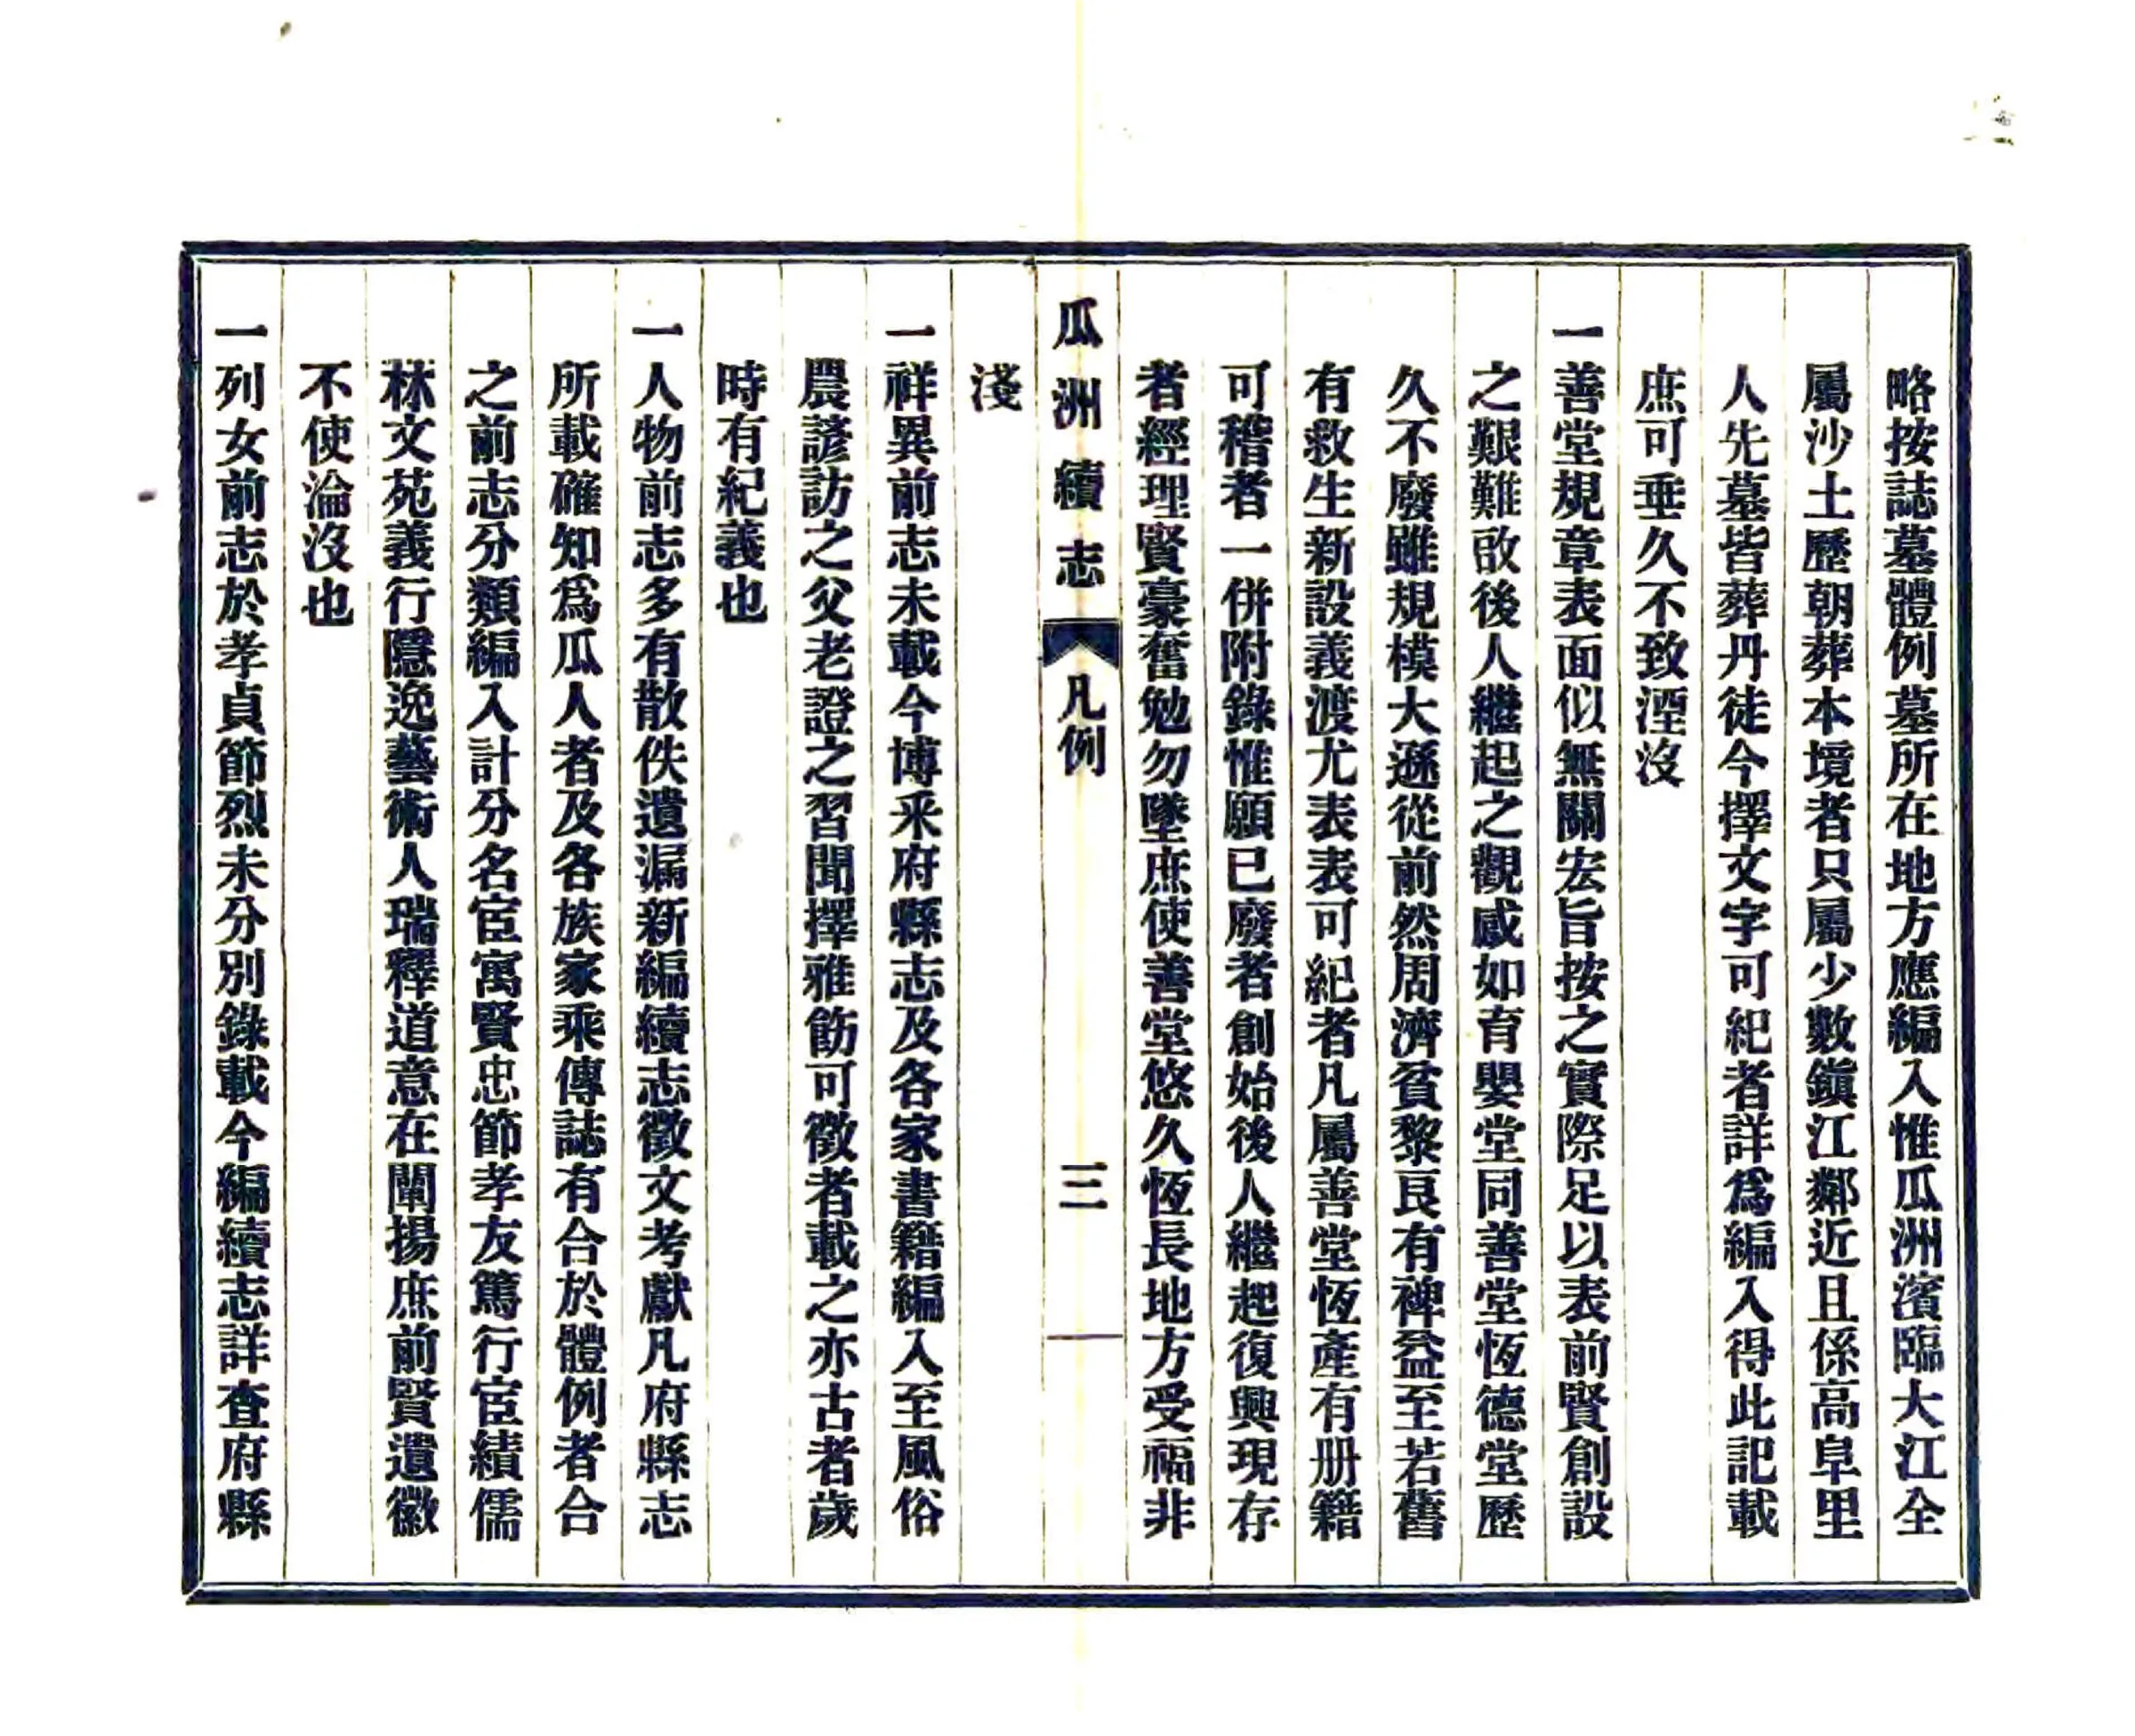 略按誌墓體例墓所在地方應編入惟瓜洲濱臨大江全
屬沙土歷朝葬本境者只屬少數鎭江鄰近且係高阜里
人先墓皆葬丹徒今擇文字可紀者詳爲編入得此記載
庶可垂久不致湮沒
一善堂規章表面似無關宏旨按之實際足以表前賢創設
之艱難啟後人繼起之觀感如育嬰堂同善堂恆德堂歷
久不廢雖規模大遜從前然周濟貧黎艮有裨益至若舊
有救生新設義渡尤表表可紀者凡屬善堂恆產有册籍
可稽者一併附錄惟願已廢者創始後人繼起復興現存
者經理賢豪奮勉勿墜庶使善堂悠久恆長地方受福非
淺
瓜洲續志 凡例 三
一祥異前志未載今博采府縣志及各家書籍編入至風俗
農諺訪之父老證之習聞擇雅飭可徵者載之亦古者歲
時有紀義也
一人物前志多有散佚遺漏新編續志徵文考獻凡府縣志
所載確知爲瓜人者及各族家乘傳誌有合於體例者合
之前志分類編入計分名宦寓賢忠節孝友篤行宦績儒
林文苑義行隱逸藝術人瑞釋道意在闡揚庶前賢遺徽
不使淪沒也
一列女前志於孝貞節烈未分別錄載今編續志詳查府縣